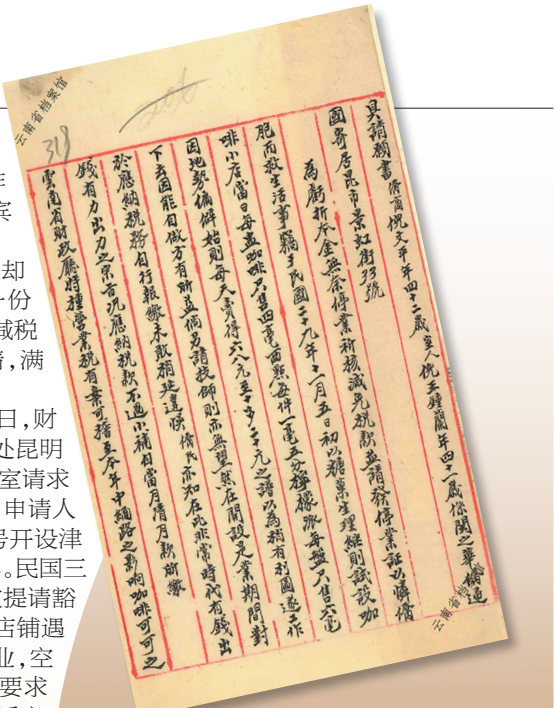 云南省档案馆
318
具請願書僑商倪文平年四十二歲室人倪王鐘蘭年四十一歲係閩之華僑返
國寄居昆市景虹街33號
為虧折本金無餘停業祈核減免稅款並請發停業証以濟僑
胞而救生活事竊于民國二十九年十一月五日初以糖菓生理繼則試設咖
啡小店當日每盅咖啡只售四毫西點每件一毫五分檸檬派每盤只售六毫
因地勢偏僻始則每天賣得六八元至十多二十元之譜以為稍有利圖遂工作
下去因能自做方有所益倘另請技師則亦無望然在開設是業期間對
於應納稅務自行報繳未敢稍延違悞僑民亦知在此非常時代有錢出
錢有力出力之宗旨況應納稅款不過小補自當月清月款所繳
雲南省財政廳特種營業稅有案可稽至本年中緬路之影响咖啡可可之
云南省档案馆
宾
却
份
减税
情,满
日,财
处昆明
室请求
申请人
号开设津
。民国三
提请豁
店铺遇
业,空
要求